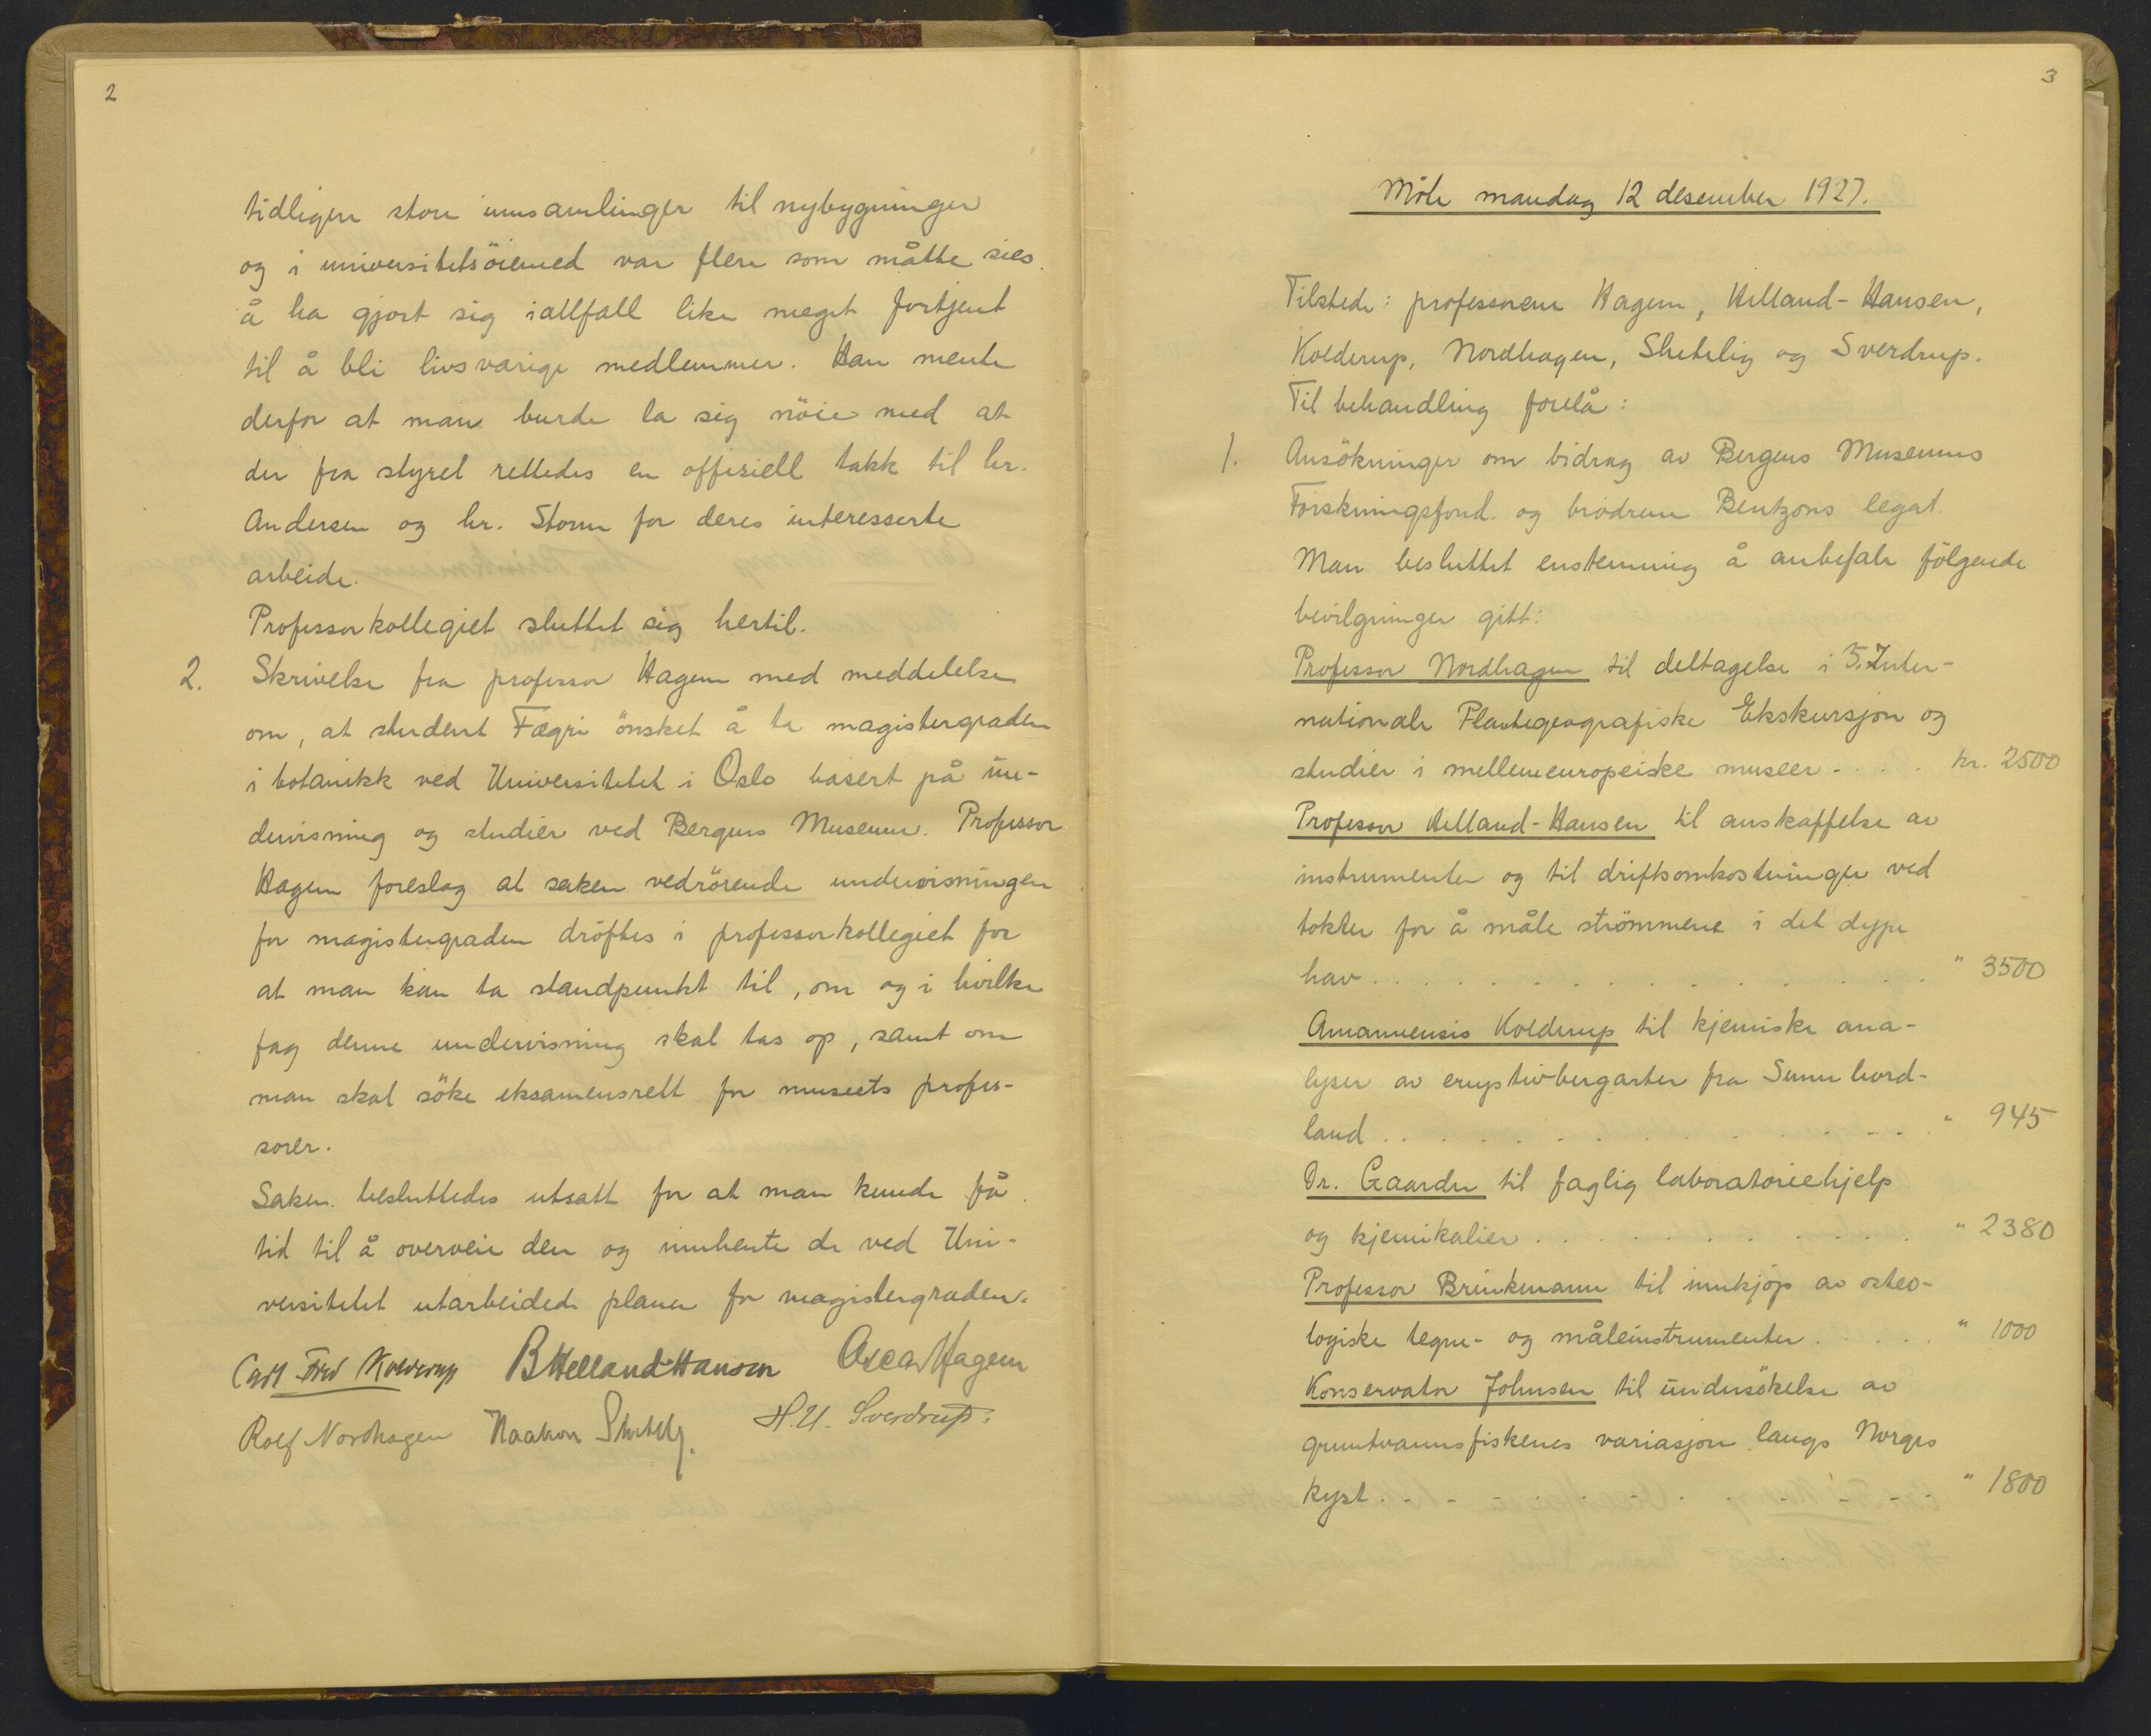 2
tidligere store innsamlinger til nybygninger
og i universitetsöiemed var flere som måtte sies
å ha gjort sig iallfall like meget fortjent
til å bli livsvarige medlemmer. Han mente
derfor at man burde la sig nöie med at
der fra styret rettedes en offisiell takk til hr.
Andersen og hr. Storm for deres interesserte
arbeide.
Professorkollegiet sluttet sig hertil.
2. Skrivelse fra professor Hagem med meddelelse
om, at student Fægri önsket å ta magistergraden
i botanikk ved Universitetet i Oslo basert på un-
dervisning og studier ved Bergens Museum. Professor
Hagem foreslog at saken vedrörende undervisningen
for magistergraden dröftes i professorkollegiet for
at man kan ta standpunkt til, om og i hvilke
fag denne undervisning skal tas op, samt om
man skal söke eksamensrett for museets profes-
sorer.
Saken besluttedes utsatt for at man kunde få
tid til å overveie den og innhente de ved Uni-
versitetet utarbeidede planer for magistergraden.
Carl Fred Kolderup B Helland-Hansen Oscar Hagem
Rolf Nordhagen Haakon Shetelig. H.U. Sverdrup.
3
Möte mandag 12 desember 1927.
Tilstede: professorene Hagem, Helland-Hansen,
Kolderup, Nordhagen, Shetelig og Sverdrup.
Til behandling forelå:
1. Ansökninger om bidrag av Bergens Museums
Forskningsfond og brödrene Bentzons legat.
Man besluttet enstemmig å anbefale fölgende
bevilgninger gitt:
Professor Nordhagen til deltagelse i 5. Inter-
nationale Plantegeografiske Ekskursjon og
studier i mellemeuropeiske museer . . . . kr. 2500
Professor Helland-Hansen til anskaffelse av
instrumenter og til driftsomkostninger ved
tokter for å måle strömmene i det dype
hav . . . . . . . . . . . . . . " 3500
Amanuensis Kolderup til kjemiske ana-
lyser av eruptivbergarter fra Sunnhord-
land . . . . . . . . . . . . . . " 945
Dr. Gaarder til faglig laboratoriehjelp
og kjemikalier . . . . . . . . . . " 2380
Professor Brinkmann til innkjöp av osteo-
logiske tegne- og måleinstrumenter . . . . . " 1000
Konservator Johnsen til undersökelse av
gruntvannsfiskenes variasjon langs Norges
kyst . . . . . . . . . . . . . . " 1800